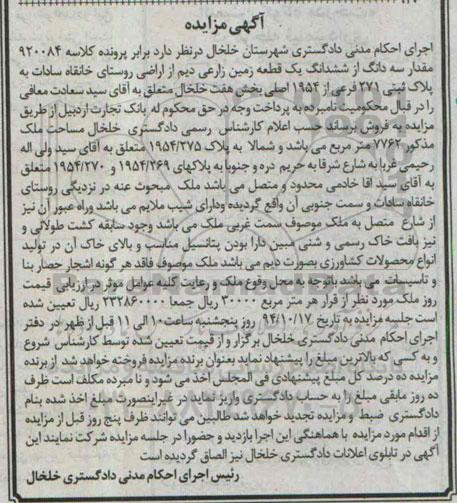 آگهی مزایده
اجرای احکام مدنی دادگستری شهرستان خلخال درنظر دارد برابر پرونده کلاسه ۹۲۰۰۸۴
مقدار سه دانگ از ششدانگ یک قطعه زمین زارعی دیم از اراضی روستای خانقاه سادات به
پلاک ثبتی ۲۷۱ فرعی از ۱۹۵۴ اصلی بخش هفت خلخال متعلق به آقای سید سعادت معافی
را در قبال محکومیت نامبرده به پرداخت وجه در حق محکوم له بانک تجارت اردبیل از طریق
مزایده به فروش برساند حسب اعلام کارشناس رسمی دادگستری خلخال مساحت ملک
مذکور ۷۷۶۲ متر مربع می باشد و شمالا به پلاک ۱۹۵۴/۲۷۵ متعلق به آقای سید ولی اله
رحیمی غربا به شارع شرقا به حریم دره و جنوبا به پلاکهای ۱۹۵۴/۲۶۹ و ۱۹۵۴/۲۷۰ متعلق
به آقای سید آقا خادمی محدود و متصل می باشد ملک مبحوث عنه در نزدیکی روستای
خانقاه سادات و سمت جنوبی آن واقع گردیده ودارای شیب ملایم می باشد وراه عبور آن نیز
از شارع متصل به ملک موصوف سمت غربی ملک می باشد وجود سابقه کشت طولانی و
نیز بافت خاک رسمی و شنی مبین دارا بودن پتانسیل مناسب و بالای خاک آن در تولید
انواع محصولات کشاورزی بصورت دیم می باشد ملک موصوف فاقد هر گونه اشجار حصار بنا
و تاسیسات می باشد باتوجه به محل وقوع ملک و رعایت کلیه عوامل موثر در ارزیابی قیمت
روز ملک مورد نظر از قرار هر متر مربع ۳۰۰۰۰ ریال جمعا ۲۳۲۸۶۰۰۰۰ ریال تعیین شده
است جلسه مزایده به تاریخ ۹۴/۱۰/۱۷ روز پنجشنبه ساعت ۱۰ الی ۱۱ قبل از ظهر در دفتر
اجرای احکام مدنی دادگستری خلخال برگزار و از قیمت تعیین شده توسط کارشناس شروع
و به کسی که بالاترین مبلغ را پیشنهاد نماید بعنوان برنده مزایده فروخته خواهد شد از برنده
مزایده ده درصد کل مبلغ پیشنهادی فی المجلس اخذ می شود و نامبرده مکلف است ظرف
ده روز مابقی مبلغ را به حساب دادگستری واریز نماید در غیراینصورت مبلغ اخذ شده بنام
دادگستری ضبط و مزایده تجدید خواهد شد طالبین می توانند ظرف پنج روز قبل از مزایده
از اقدام مورد مزایده با هماهنگی این اجرا بازدید و حضورا در جلسه مزایده شرکت نمایند این
آگهی در تابلوی اعلانات دادگستری خلخال نیز الصاق گردیده است
رئیس اجرای احکام مدنی دادگستری خلخال